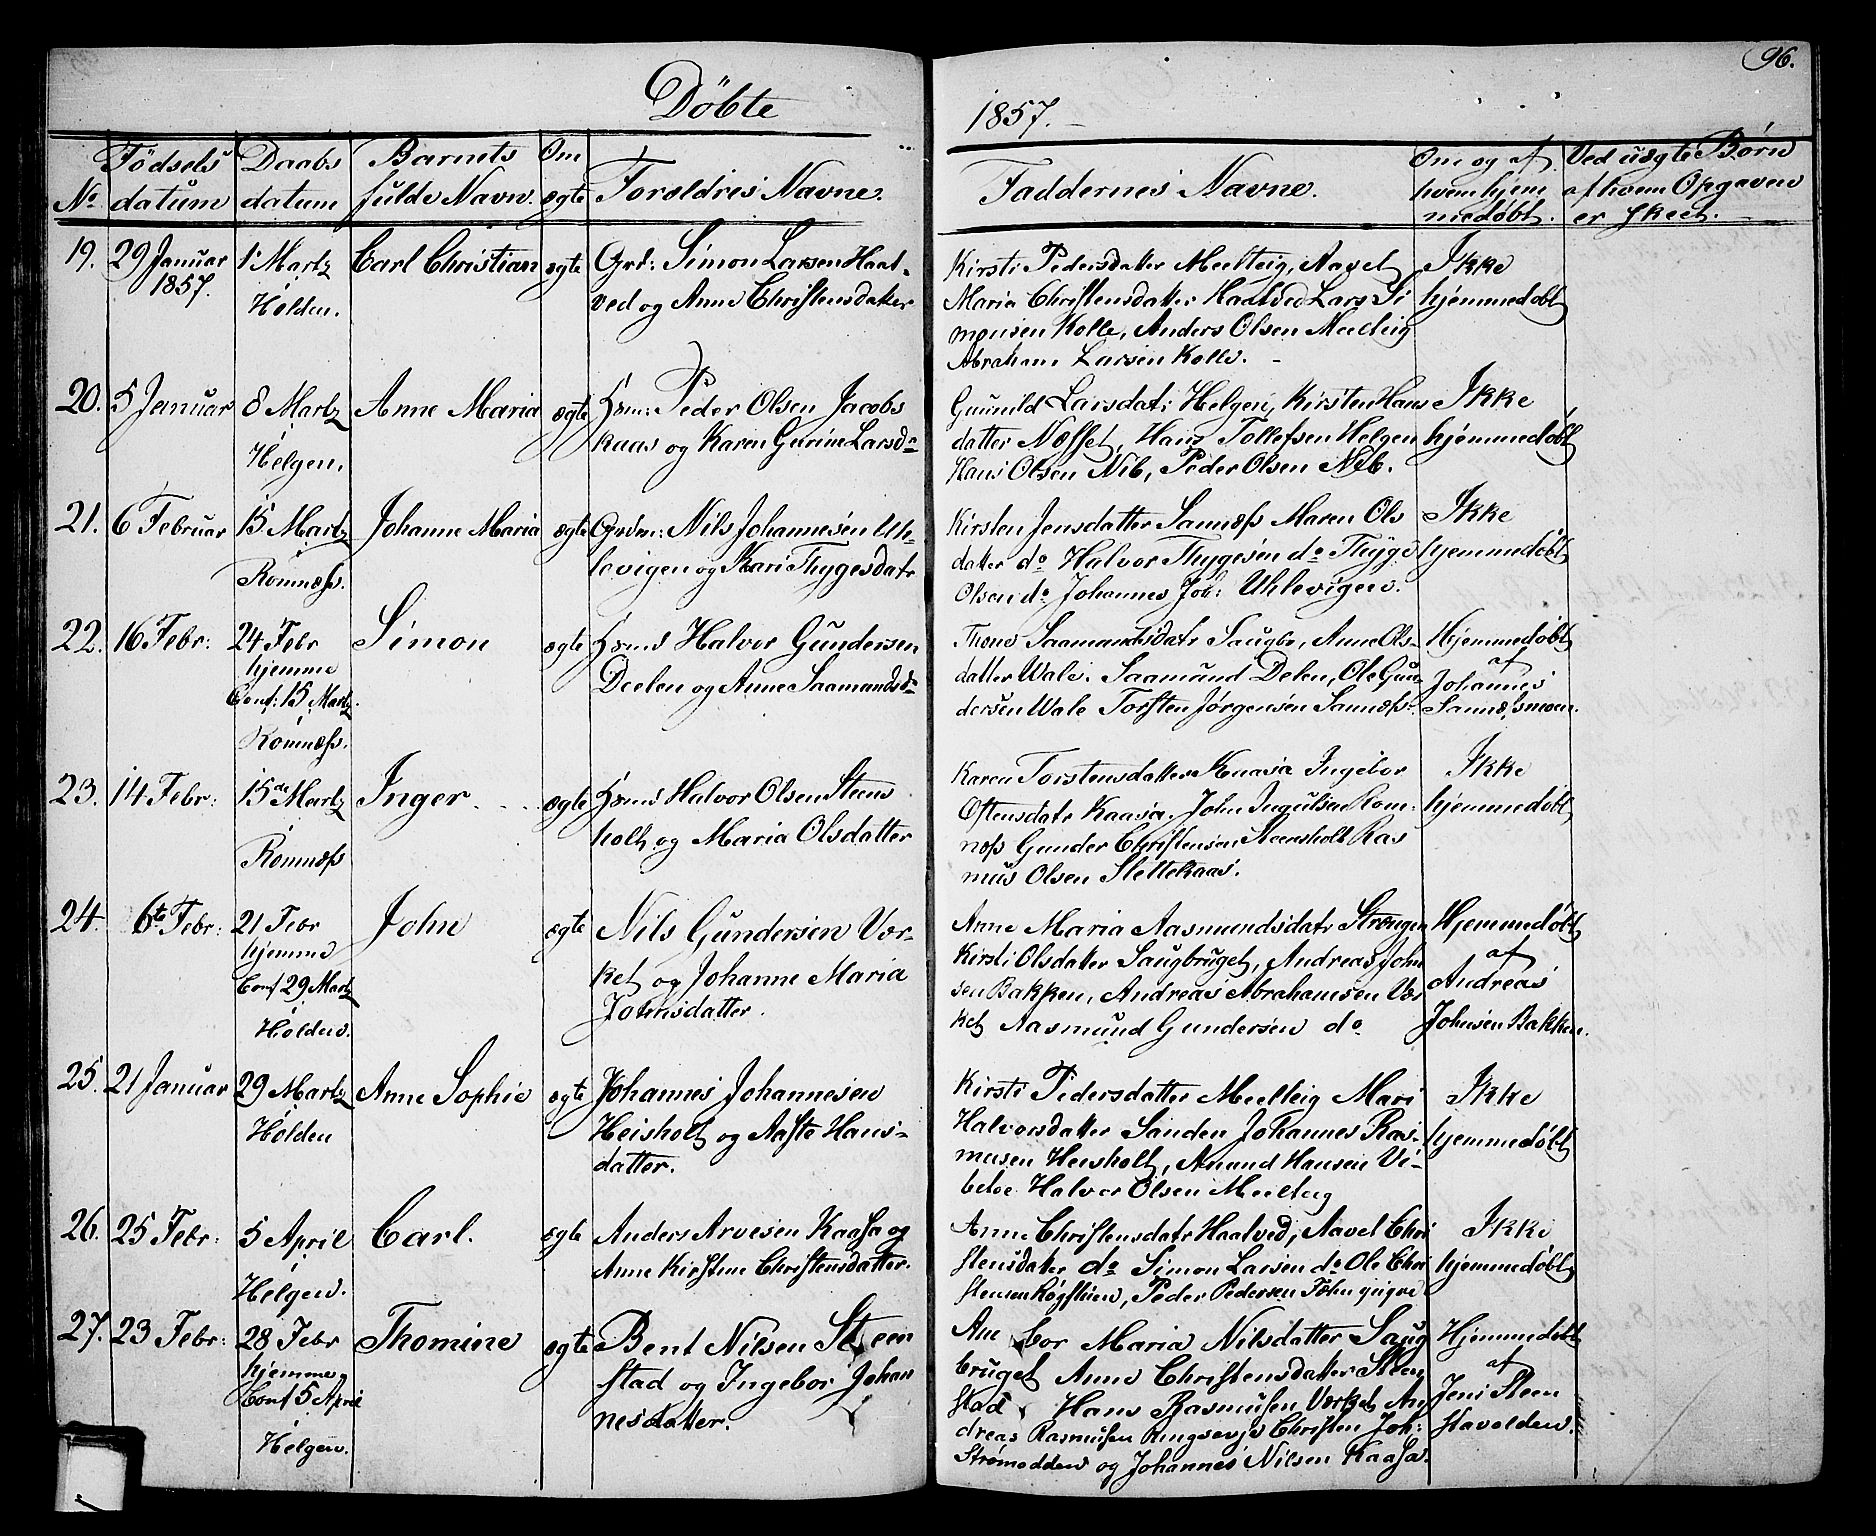 96.
Döbte
1857.
No
Födsels datum
Daabs datum
Barnets fulde Navn
Om ægte
Forældres Navne.
Faddernes Navne.
Om og af hvem hjemmedøbt.
Ved uægte Børn af hvem Opgaven er skeet.
19. 29 Januar 1857.
1 Martz i Holden.
Carl Christian
ægte
Grd: Simon Larsen Haat-
ved og Anne Christensdatter
Kirsti Pedersdatter Meelteig, Aavel
Maria Christensdatter Haatved Lars Si
monsen Kolle, Anders Olsen Meelteig
Abraham Larsen Kolle.
Ikke
hjemmedøbt
20. 5 Januar
8 Martz
i
Helgen.
Anne Maria
ægte
Hsm: Peder Olsen Jacobs
kaas og Karen Gurine Larsd
Gunnild Larsdat: Helgen, Kirsten Hans
datter Næsset, Hans Tollefsen Helgen
Hans Olsen Nib, Peder Olsen Nib.
Ikke
hjemmedøbt
21. 6 Februar
15 Martz
i
Romnæss.
Johanne Maria
ægte
Grdm: Nils Johannesen Uh-
levigen og Kari Thygesdatr
Kirsten Jensdatter Sannæss Maren Ols
datter do Halvor Thygesen do Thyge
Olsen do Johannes Joh: Uhlevigen.
Ikke
hjemmedøbt
22. 16 Febr:
24 Febr
hjemme
Conf: 15 Martz
i
Romnæss.
Simon
ægte
Hsmd Halvor Gundersen
Deelen og Anne Saamandsd
Thone Saamandsdatr Saugbr, Anne Ols-
datter Wale. Saamund Delen, Ole Gun-
dersen Wale Torsten Jørgensen Sannæss.
Hjemmedøbt
af
Johannes
Sannæssmoen.
23. 14 Febr:
15de Martz
i
Romnæss
Inger
ægte
Hsmd Halvor Olsen Steens
holt og Maria Olsdatter
Karen Torstensdatter Kaasa Ingebor
Ostensdatr Kaasa. John Ingulsen Rom-
næss Gunder Christensen Steensholt Ras
mus Olsen Slettekaas.
Ikke
hjemmedøbt
24. 6te Febr:
21 Febr
hjemme
Conf 29 Martz
i
Holden.
John
ægte
Nils Gundersen Vær-
ket og Johanne Maria
Johnsdatter.
Anne Maria Aasmundsdatr Strængen
Kirsti Olsdatter Saugbruget, Andreas John
sen Bakken, Andreas Abrahamsen Vær
ket Aasmund Gundersen do
Hjemmedøbt
af
Andreas
Johnsen Bakken.
25. 21 Januar
29 Martz
i
Holden
Anne Sophie
ægte
Johannes Johannesen
Heisholt og Aaste Hans-
datter.
Kirsti Pedersdatter Meelteig Mari
Halvorsdatter Sanden Johannes Ras-
musen Heisholt, Amund Hansen Vi-
betoe Halvor Olsen Meelteig
Ikke
hjemmedøbt
26. 25 Febr:
5 April
i
Helgen.
Carl.
ægte
Anders Arvesen Kaasa og
Anne Kirstine Christensdatter.
Anne Christensdatr Haatved, Aavel Chri
stensdatter do Simon Larsen do Ole Chri
stensen Røgsteen, Peder Pedersen
Ikke
hjemmedøbt
27. 23 Febr:
28 Febr
hjemme,
Conf 5 April
i
Helgen.
Thomine
ægte
Bent Nilsen Steen
stad og Ingebor Johan
nesdatter.
Maria Nilsdatter Saug
bruget Anne Christensdatter Steen
stad Hans Rasmussen Værket An
dreas Rasmussen Ringsevje Christen Joh:
Strømodden og Johannes Nilsen Kaasa.
Hjemmedøbt
af
Jens Steen
stavolden.